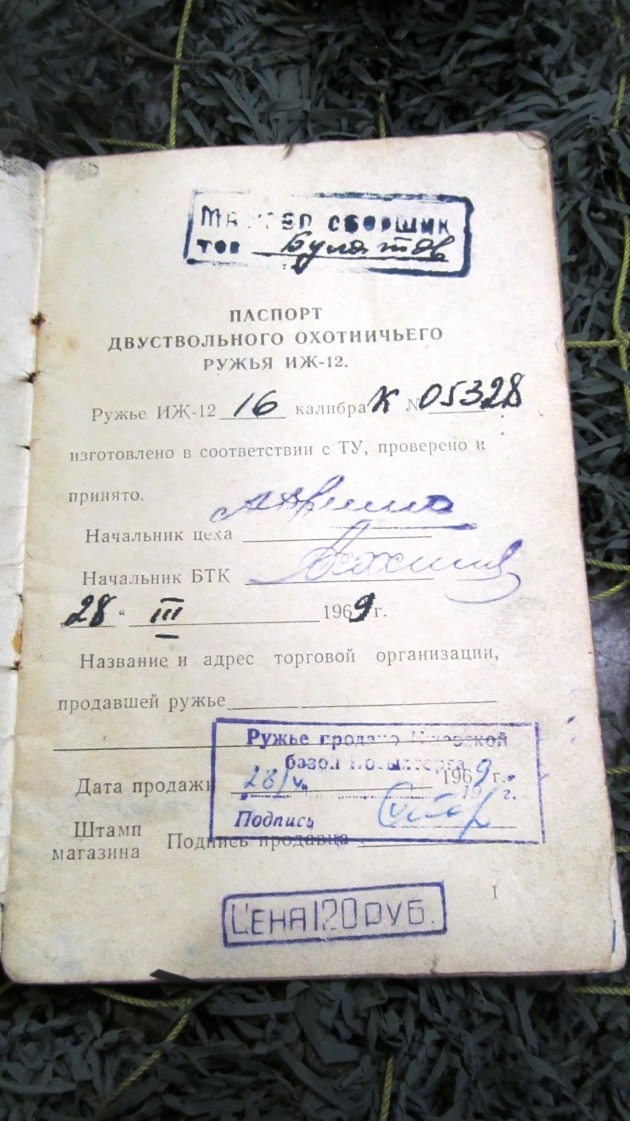 МАСТЕР СБОРЩИК
тов Булатов
ПАСПОРТ
ДВУСТВОЛЬНОГО ОХОТНИЧЬЕГО
РУЖЬЯ ИЖ-12.
Ружье ИЖ-12 16 калибра К № 05328
изготовлено в соответствии с ТУ, проверено и
принято.
Начальник цеха
Начальник БТК
28 " III 1969 г.
Название и адрес торговой организации,
продавшей ружье
Ружье продано Ижевской
базой Посылторга
Дата продажи 28/V 1969 г.
19 г.
Подпись
Штамп
магазина
Подпись продавца
1
ЦЕНА 120 РУБ.